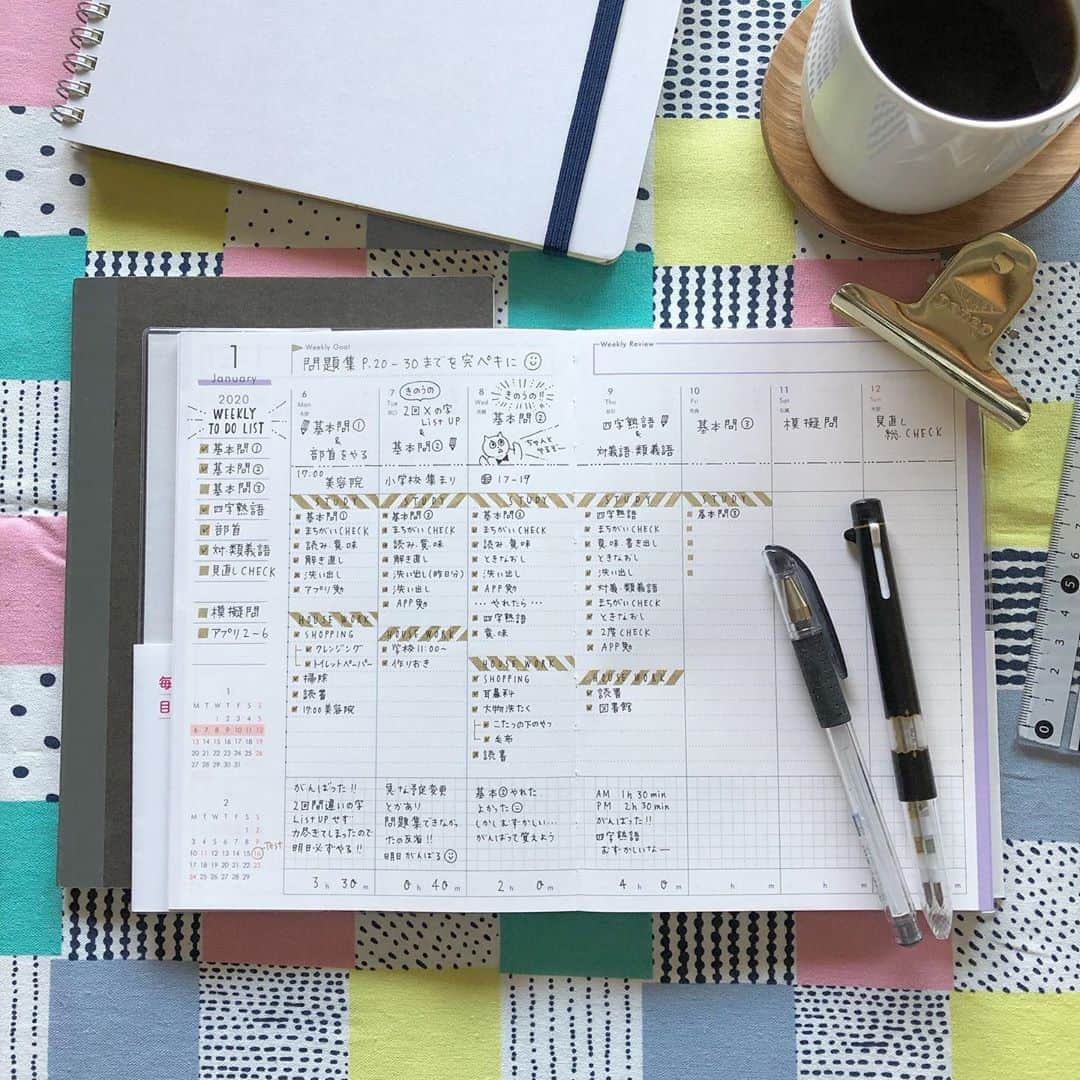 1
January
2020
WEEKLY
TO DO LIST
基本問①
基本問②
基本問③
四字熟語
部首
対・類義語
見直しCHECK
模擬問
アプリ2-6
毎
目
1
M T W T F S S
1 2 3 4 5
6 7 8 9 10 11 12
13 14 15 16 17 18 19
20 21 22 23 24 25 26
27 28 29 30 31
2
M T W T F S S
1 2
3 4 5 6 7 8 9
10 11 12 13 14 15 16
Test
17 18 19 20 21 22 23
24 25 26 27 28 29
Weekly Goal
問題集 P.20-30までを完ペキに
Weekly Review
6
Mon
基本問①
&
部首をやる
17:00
美容院
STUDY
基本問①
まちがいCHECK
読み・意味
解き直し
洗い出し
アプリ勉
HOUSE WORK
SHOPPING
クレンジング
トイレットペーパー
掃除
読書
17:00美容院
がんばった!!
2回間違いの字
List UPせず
力尽きてしまったので
明日必ずやる!!
3 h 30 m
7
Tue
きのうの
2回×の字
List UP
&
基本問②
小学校 集まり
STUDY
基本問②
まちがいCHECK
読み・意味
解き直し
洗い出し(昨日分)
洗い出し
APP勉
HOUSE WORK
学校11:00~
作りおき
急な予定変更
とかあり
問題集できなかっ
たの反省!!
明日がんばる
0 h 40 m
8
Wed
きのうの!!
基本問②
ちゃんと
やるぞー
17-19
STUDY
基本問②
まちがいCHECK
読み・意味
ときなおし
洗い出し
APP勉
…やれたら…
四字熟語
意味
HOUSE WORK
SHOPPING
耳鼻科
大物洗たく
こたつの下のやつ
毛布
読書
基本②やれた
よかった
しかしむずかしい…
がんばって覚えよう
2 h 0 m
9
Thu
四字熟語
&
対義語・類義語
STUDY
四字熟語
まちがいCHECK
意味・書き出し
ときなおし
洗い出し
対義・類義語
まちがいCHECK
ときなおし
2度CHECK
APP勉
HOUSE WORK
読書
図書館
AM 1h 30min
PM 2h 30min
がんばった!!
四字熟語
むずかしいなー
4 h 0 m
10
Fri
基本問③
STUDY
基本問③
h m
11
Sat
模擬問
h m
12
Sun
見直し
総CHECK
h
0
1
2